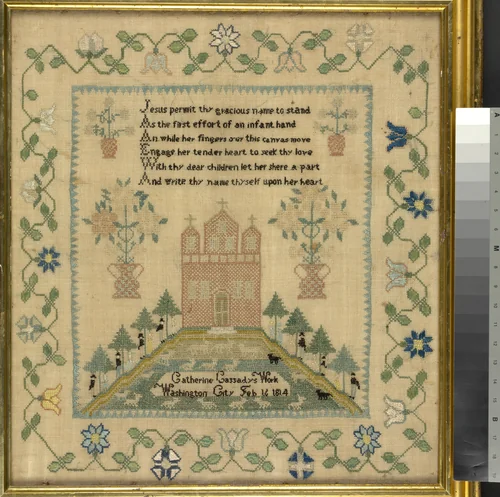 Jesus permit thy gracious name to stand
As the fast effort of an infant hand
An while her fingers o'er this canvas move
Engage her tender heart to seek thy love
With thy dear children let her shere a part
And write thy name thyself upon her heart
Catherine Cassadys Work
Washington City Feb 16 1814
A
M
B